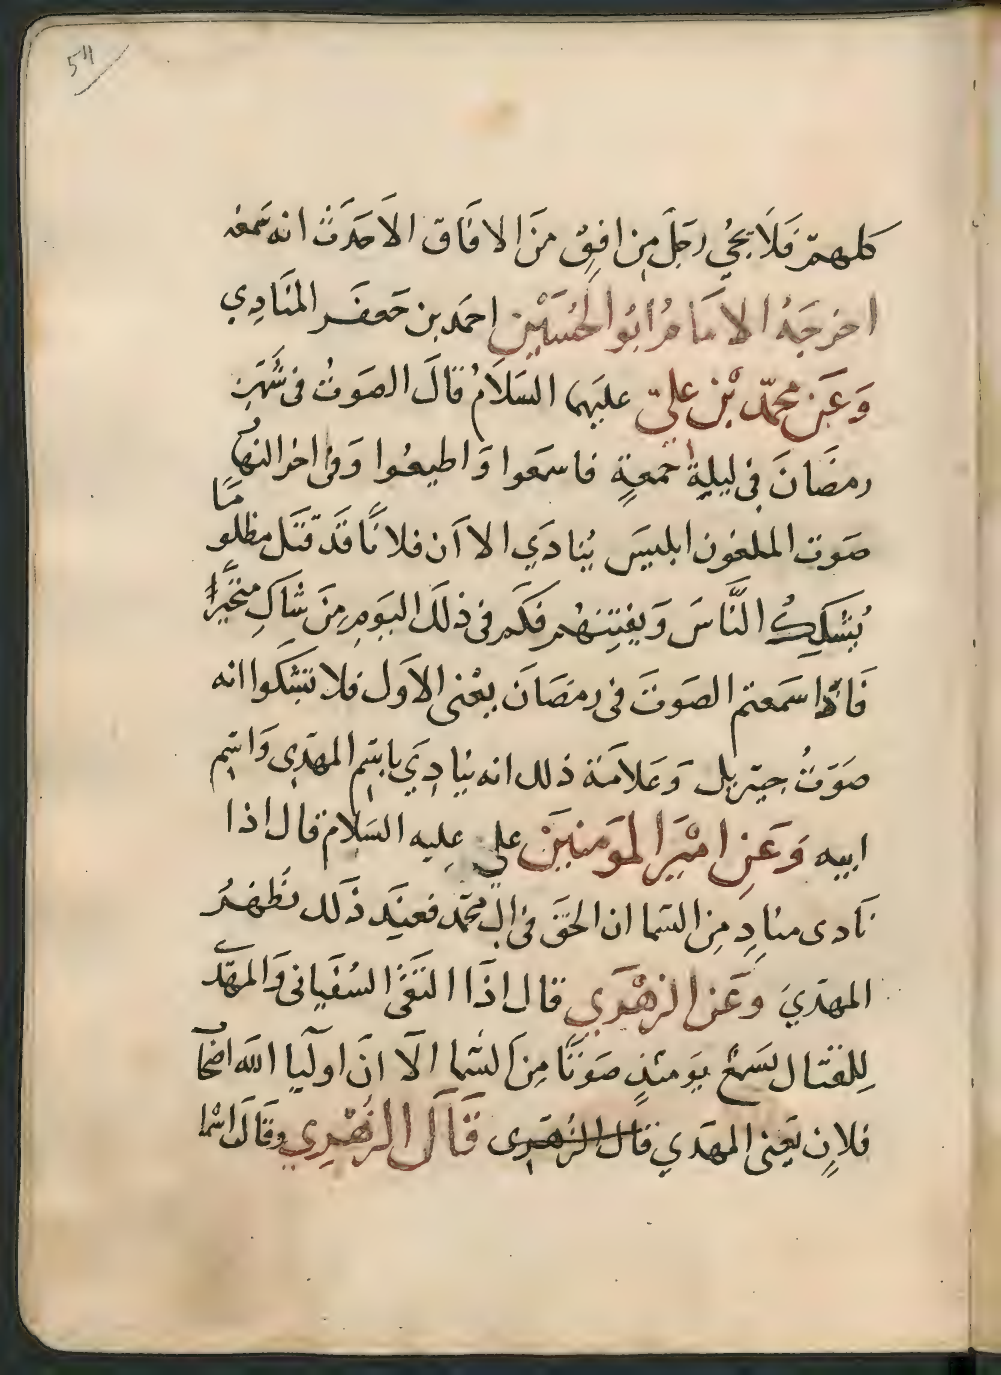 كلهم فَلَا يجي رجل من افق منَ الافَاق الاحَدث انه سَمعه
اخرجَهُ الامَامُ ابُوا الحُسَيْن احمَد بن جَعفَر المنَادِي
وَعَن محمّد بْن عليّ عليهما السَلَامُ قالَ الصَوتُ في شَهر
رمضَانَ في ليلةِ جمعةٍ فاسمَعوا وَاطيعُوا وَفي اخر النهار
صَوت الملعُون ابليسَ يُنادَي الا اَن فلانًا قَد قتل مظلومًا
يُشَكِكُ النَّاسَ وَيفتِنهُم فَكم في ذلكَ اليَومِ مِن شاكٍ متحَيرًا
فَاذا سَمَعتم الصَوتَ في رمضَانَ يعْني الاَول فلا تشكوا انه
صَوتُ جبريل وَعَلامَة ذلك انه يُنادِي باسْم المهدِى وَاسْم
ابيه وَعَن اميْر المَومنينَ علي عليه السَلام قال اذا
نَادى منادٍ مِن السَما ان الحقَ في الِ محمّد فعِندَ ذَلك يَظهرُ
المهدَيَ وعَن الزهْري قال اذَا التَقَى السُفيانى وَالمهدّي
لِلقتال يسمَعُ يَومئذٍ صَوتًا مِن السَّما اَلا انَ اوليا الله اصحَاب
فلانٍ يَعني المهدَي قال الزُهَرى قَالَ الزُهْري وقَالت اسْما